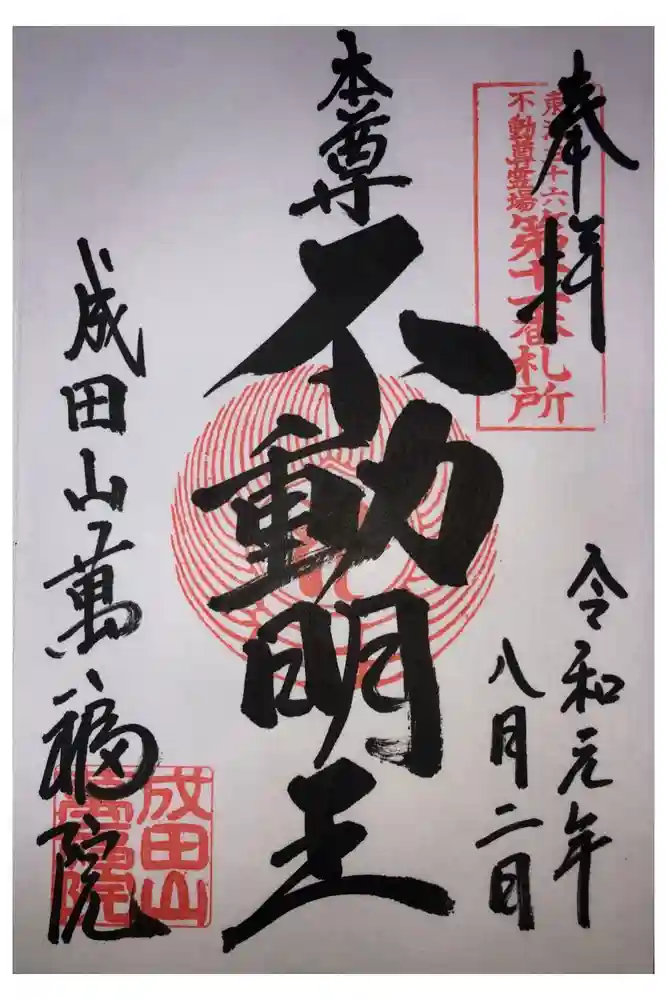 奉拝
東海三十六
不動尊霊場
第十一番札所
本尊
不動明王
令和元年
八月二日
成田山萬福院
成田山